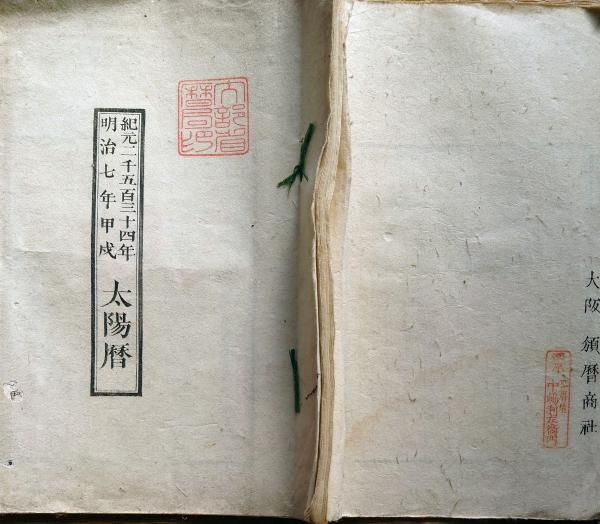 大阪 頒暦商社
文部省
暦局印
紀元二千五百三十四年
明治七年甲戌
太陽暦